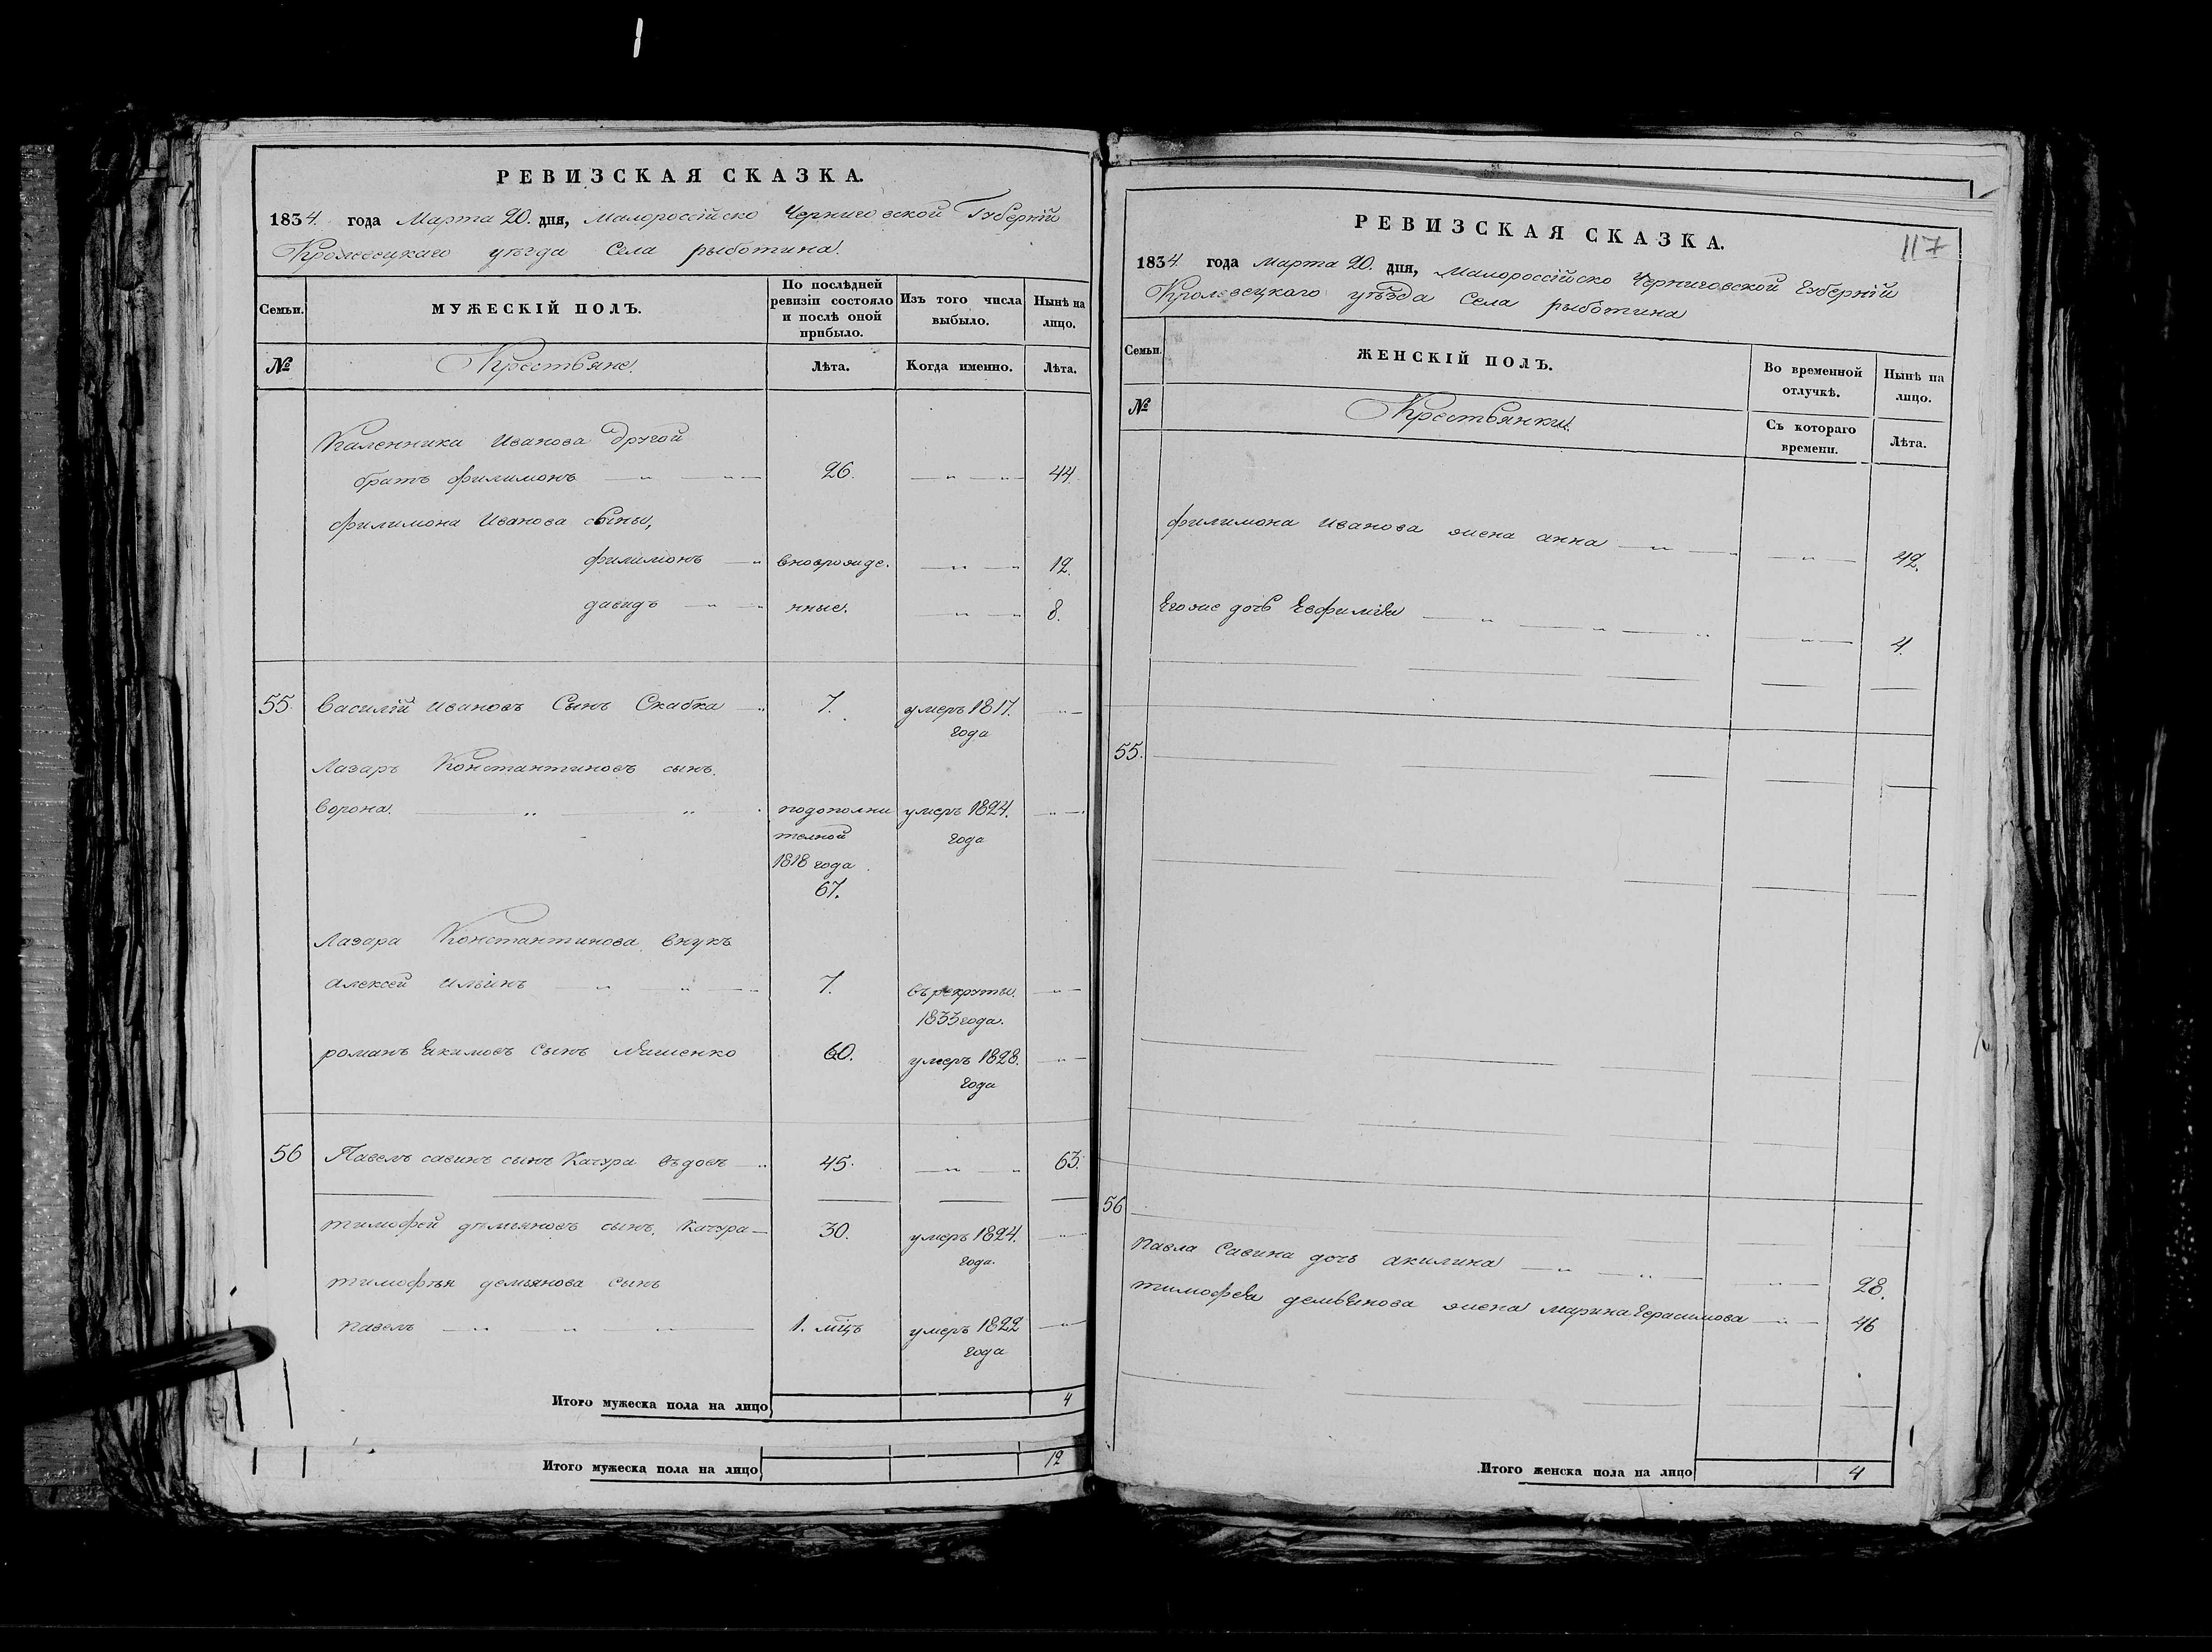 РЕВИЗСКАЯ СКАЗКА.
1834. года Марта 20. дня, Малороссійско Черниговской Губерніи
Кролевецкаго уѣзда Села рыботина.
Семьи.
МУЖЕСКІЙ ПОЛЪ.
По послѣдней ревизіи состояло и послѣ оной прибыло.
Изъ того числа выбыло.
Нынѣ на лицо.
№
Крестьяне.
Лѣта.
Когда именно.
Лѣта.
Каленника Иванова другой
братъ филимонъ 26. 44.
филимона Иванова сыны,
филимонъ вноврожде. 12.
давидъ нные. 8.
55. Василій Ивановъ Сынъ Скабка 7. умеръ 1817.
года
Лазарь Константиновъ сынъ.
Ворона. подополни умеръ 1824.
телной года
1818 года
67.
Лазара Константинова внукъ
Алексей Ильинъ 7. въ рекруты.
1833 года.
романъ Екимовъ Сынъ 60. умеръ 1828.
года
56 Павелъ савинъ сынъ Качура вдовъ 45. 63.
тимофей демьяновъ сынъ. Качура 30. умеръ 1824.
года.
тимофѣя демьянова сынъ
павелъ 1. мцъ умеръ 1822
года
Итого мужеска пола на лицо 4
Итого мужеска пола на лицо 12
РЕВИЗСКАЯ СКАЗКА.
117
1834. года Марта 20. дня, Малороссійско Черниговской Губерніи
Кролевецкаго уѣзда Села рыботина
Семьи.
ЖЕНСКІЙ ПОЛЪ.
Во временной отлучкѣ.
Нынѣ на лицо.
№
Крестьянки.
Съ котораго времени.
Лѣта.
филимона Иванова жена анна 42.
Егоже дочь Евфимія 4.
55.
56
Павла Савина дочь акилина 28.
тимофея демьянова жена марина Герасимова 46
Итого женска пола на лицо 4